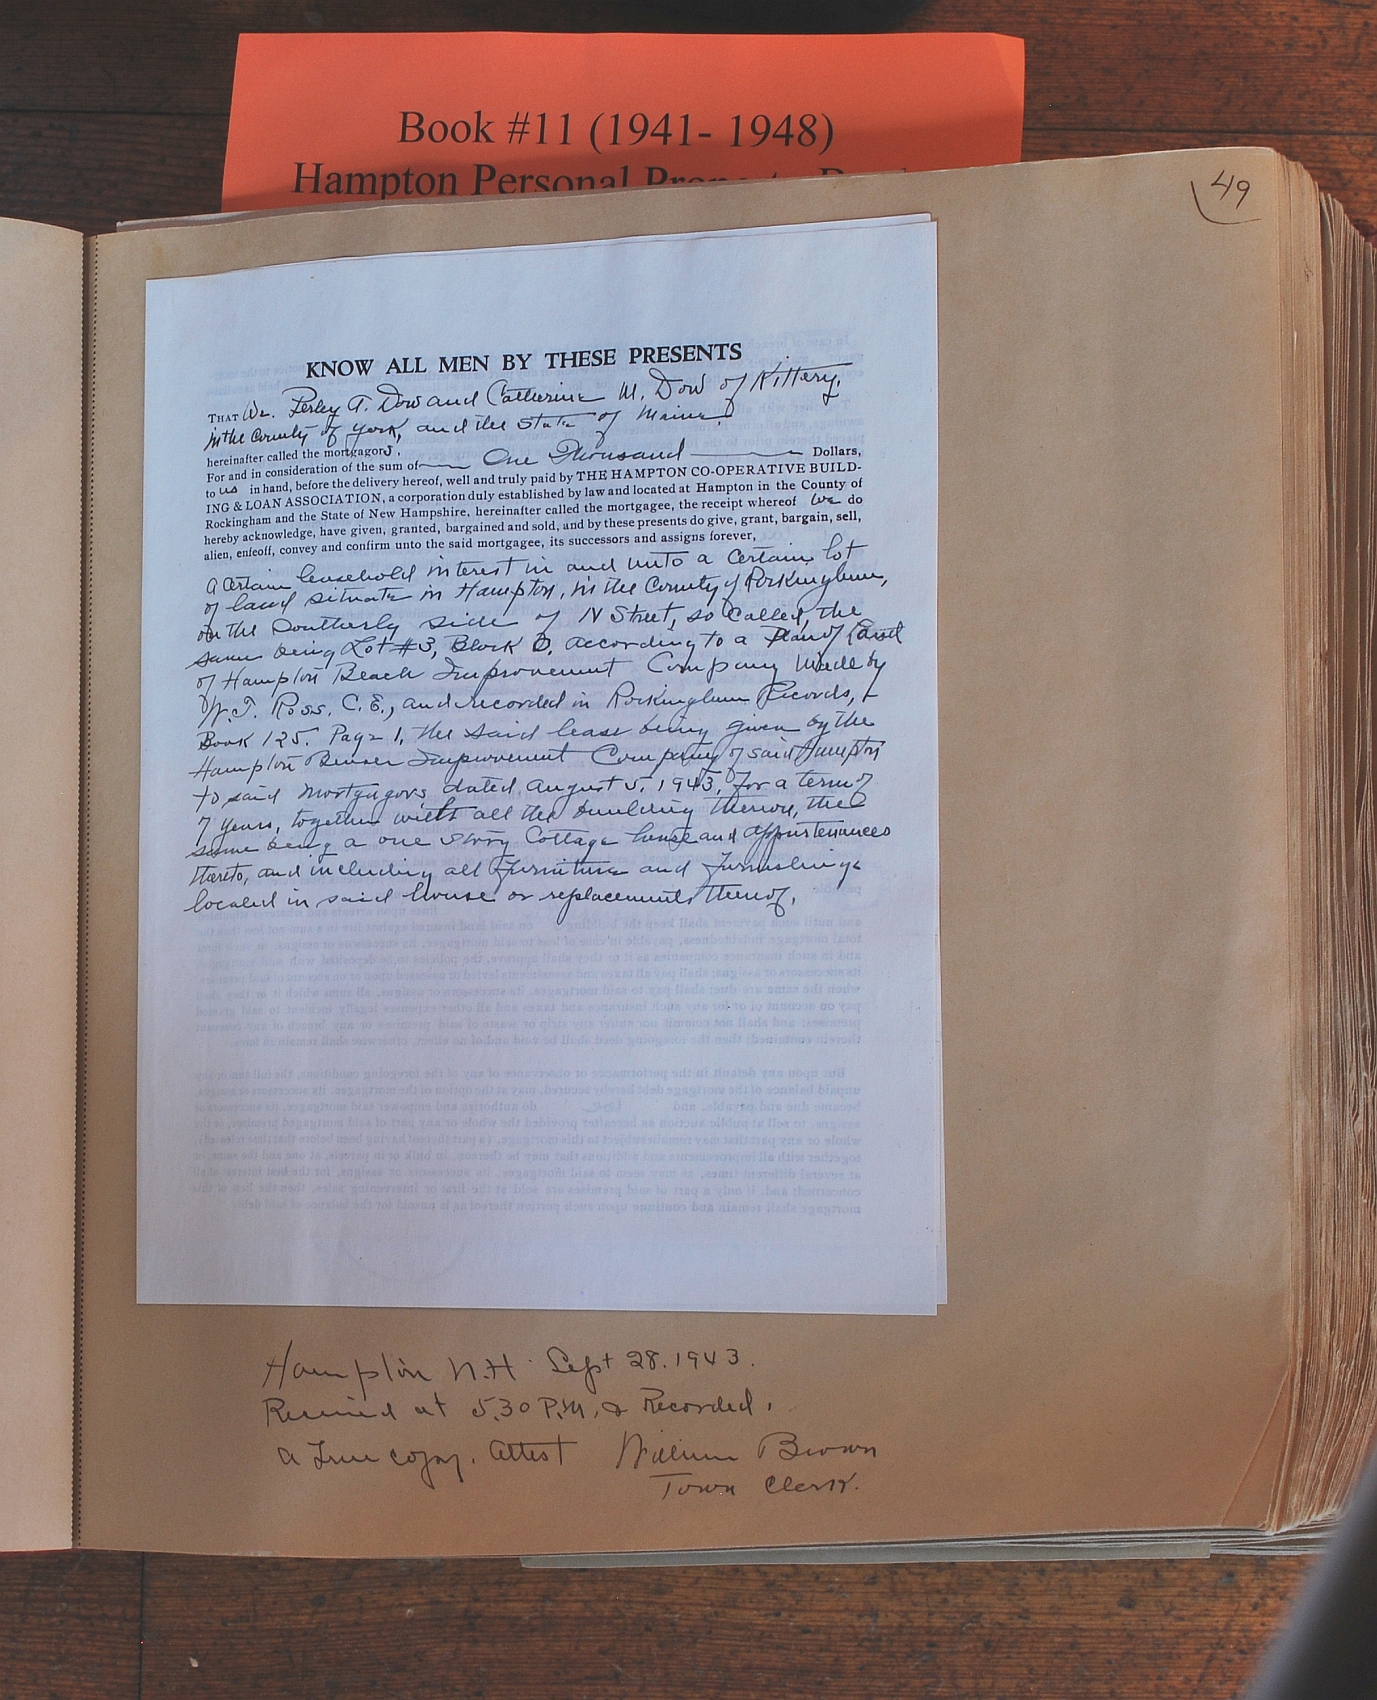 Book #11 (1941- 1948)
Hampton Personal Property
49
KNOW ALL MEN BY THESE PRESENTS
THAT We. Perley A. Dow and Catherine M. Dow of Kittery,
in the County of York, and the State of Maine,
hereinafter called the mortgagors.
For and in consideration of the sum of One Thousand Dollars,
to us in hand, before the delivery hereof, well and truly paid by THE HAMPTON CO-OPERATIVE BUILD-
ING & LOAN ASSOCIATION, a corporation duly established by law and located at Hampton in the County of
Rockingham and the State of New Hampshire, hereinafter called the mortgagee, the receipt whereof we do
hereby acknowledge, have given, granted, bargained and sold, and by these presents do give, grant, bargain, sell,
alien, enfeoff, convey and confirm unto the said mortgagee, its successors and assigns forever,
a certain leasehold interest in and unto a certain lot
of land situate in Hampton, in the County of Rockingham,
on the Southerly side of N Street, so called, the
same being Lot #3, Block according to a Plan of Land
of Hampton Beach Improvement Company made by
W.T. Ross. C.E., and recorded in Rockingham Records,
Book 125. Page 1, the said lease being given by the
Hampton Beach Improvement Company of said Hampton
to said mortgagors, dated August 5, 1943, for a term of
7 years, together with all the building thereon, the
same being a one story Cottage house and appurtenances
thereto, and including all furniture and furnishings
located in said house or replacements thereof.
Hampton N.H. Sept 28. 1943.
Received at 5.30 P.M. & Recorded.
A True copy. Attest William Brown
Town Clerk.